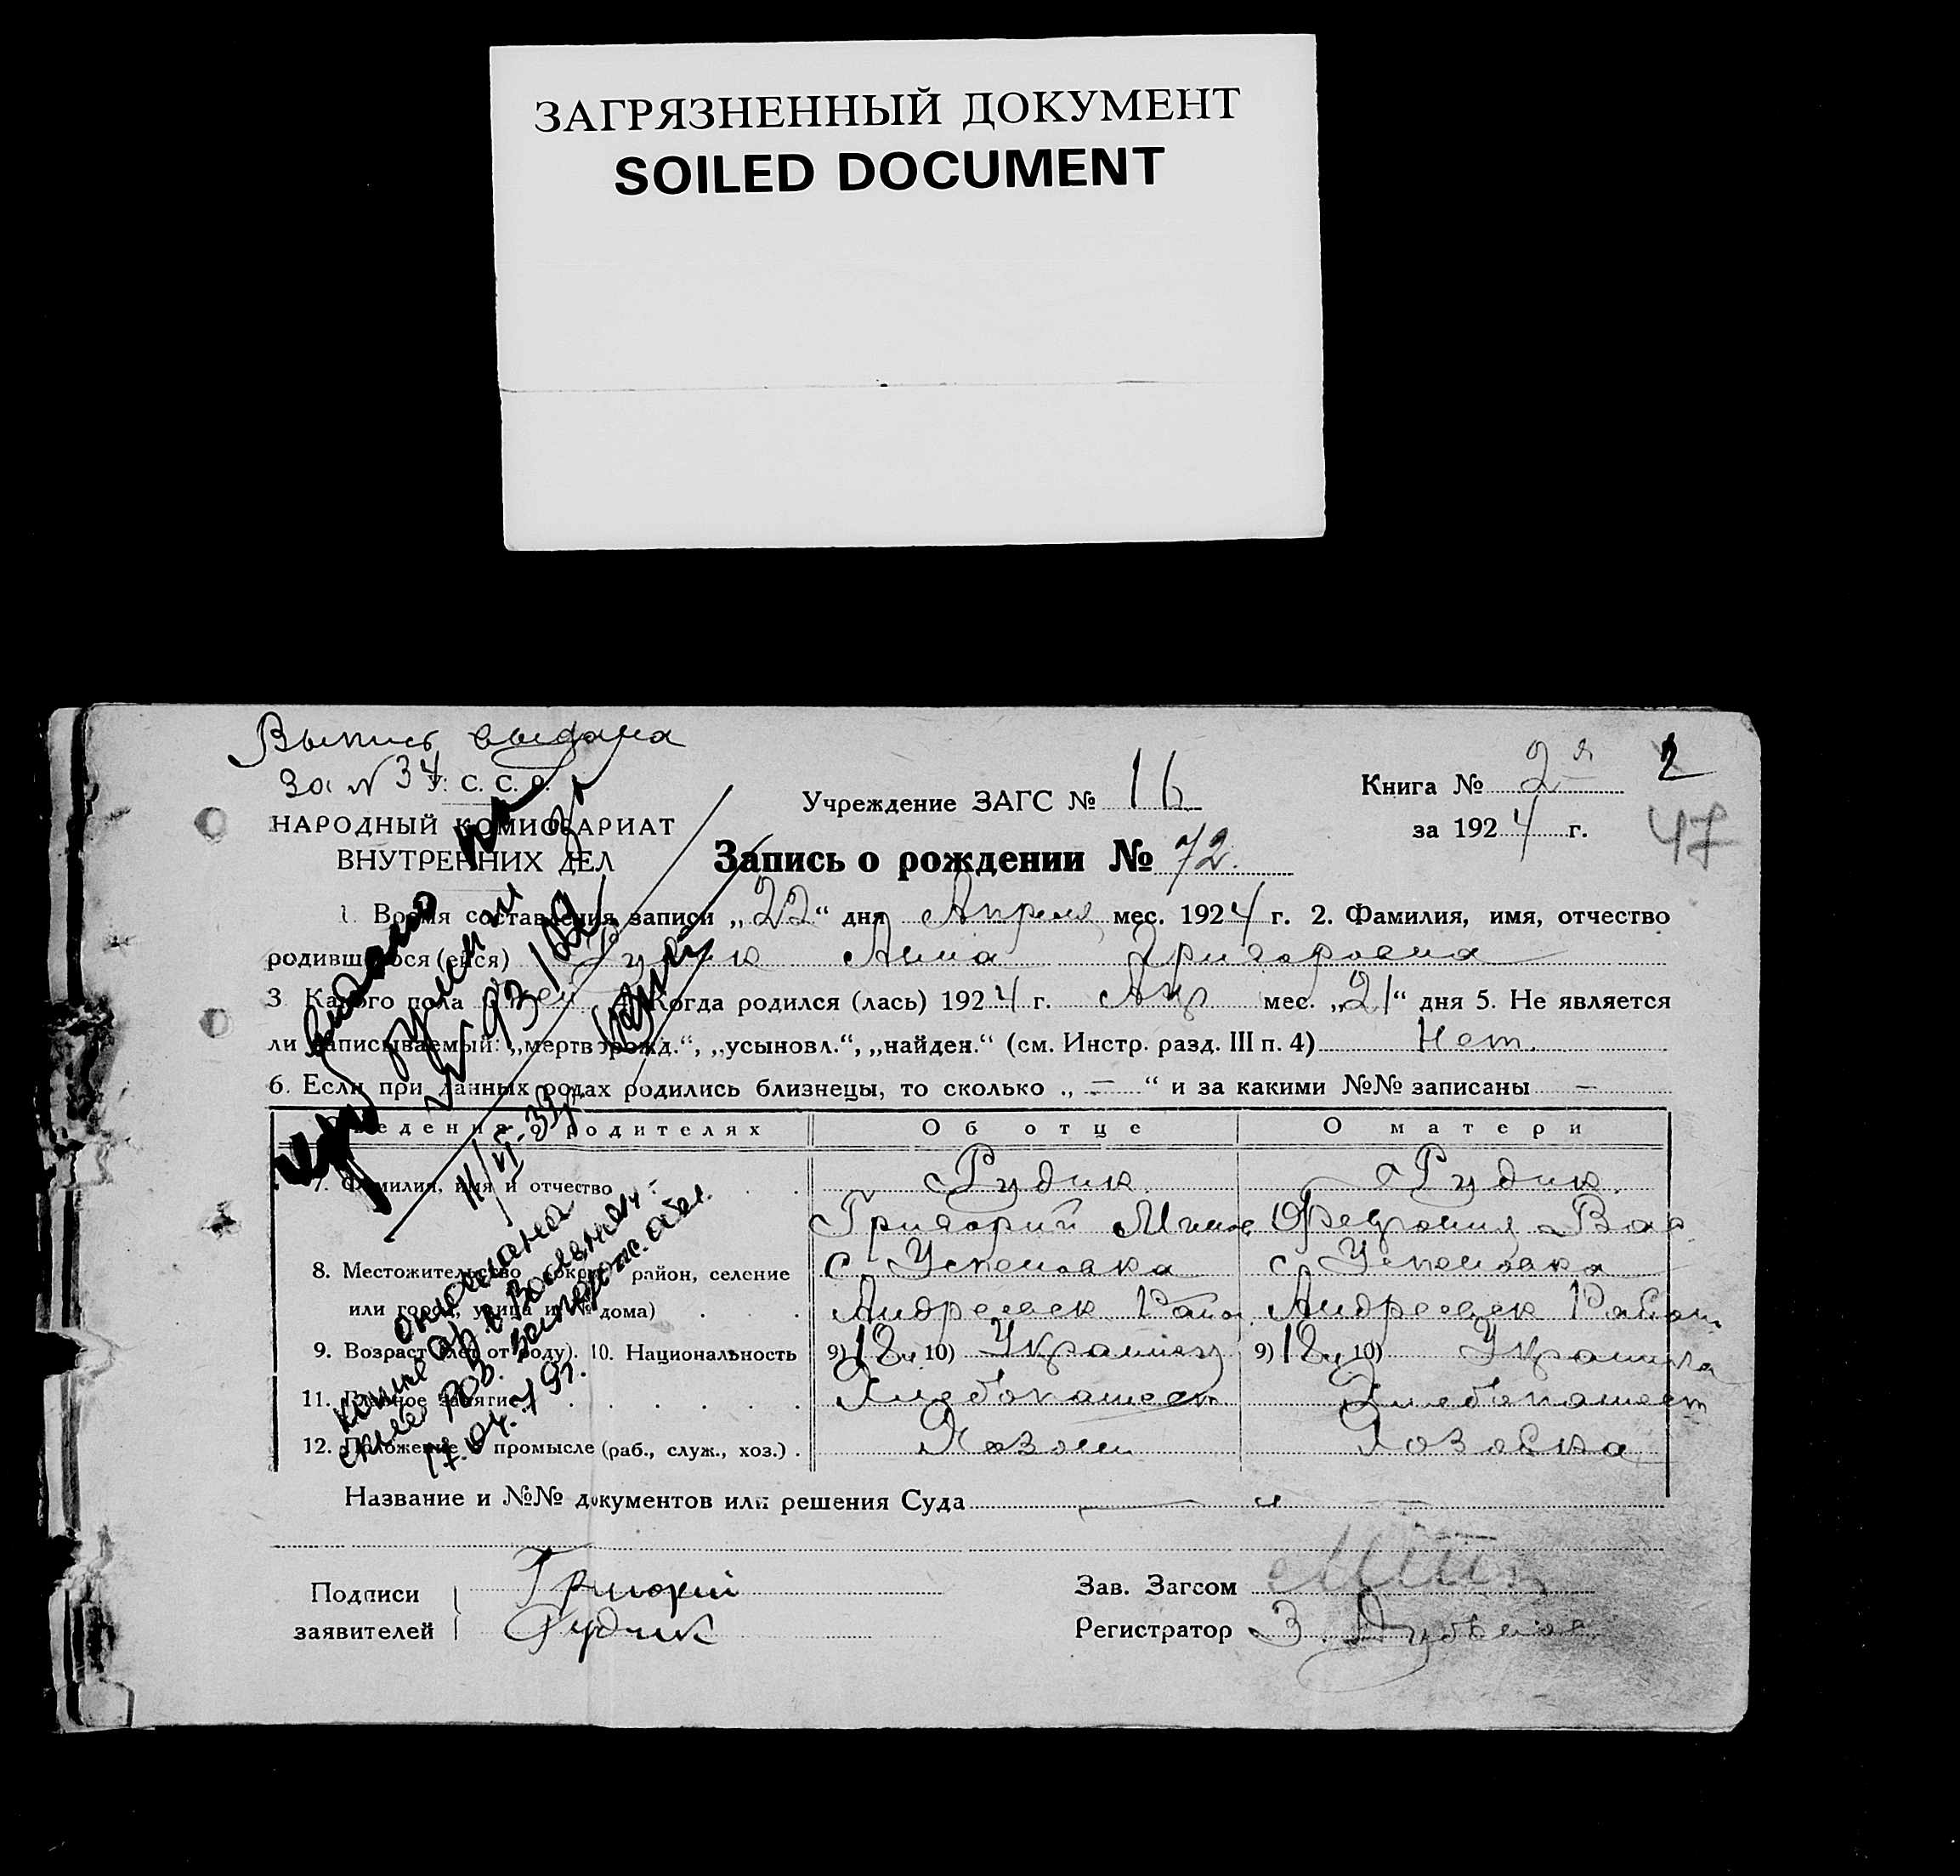 ЗАГРЯЗНЕННЫЙ ДОКУМЕНТ
SOILED DOCUMENT
Выпись выдана
За № 34
У. С. С. Р.
НАРОДНЫЙ КОМИССАРИАТ
ВНУТРЕННИХ ДЕЛ
Учреждение ЗАГС № 16
Книга № 2я 2
за 1924 г. 47
Запись о рождении № 72.
1. Время составления записи „22“ дня Апреля мес. 1924 г. 2. Фамилия, имя, отчество
родившегося (ейся) Рудик Анна Григоровна
3 Какого пола жен 4. Когда родился (лась) 1924 г. Апр мес. „21“ дня 5. Не является
ли записываемый: „мертворожд.“, „усыновл.“, „найден.“ (см. Инстр. разд. III п. 4) Нет.
6. Если при данных родах родились близнецы, то сколько „ — “ и за какими №№ записаны —
Сведения о родителях Об отце О матери
7. Фамилия, имя и отчество Рудик Рудик
Григорий
8. Местожительство (округ, район, селение с Успеновка с Успеновка
или город, улица и № дома) Андреевск Район Андреевск Район
9. Возраст (лет от роду). 10. Национальность 9) 18 10) Украинец 9) 18 10) Украинка
11. Главное занятие Хлебопашест Хлебопашест
12. Положение в промысле (раб., служ., хоз.) Хозяин Хозяйка
Название и №№ документов или решения Суда —
Подписи Григорий
заявителей Рудик
Зав. Загсом
Регистратор З.
выдано
№ 93
11/VI-39г.
17.04.